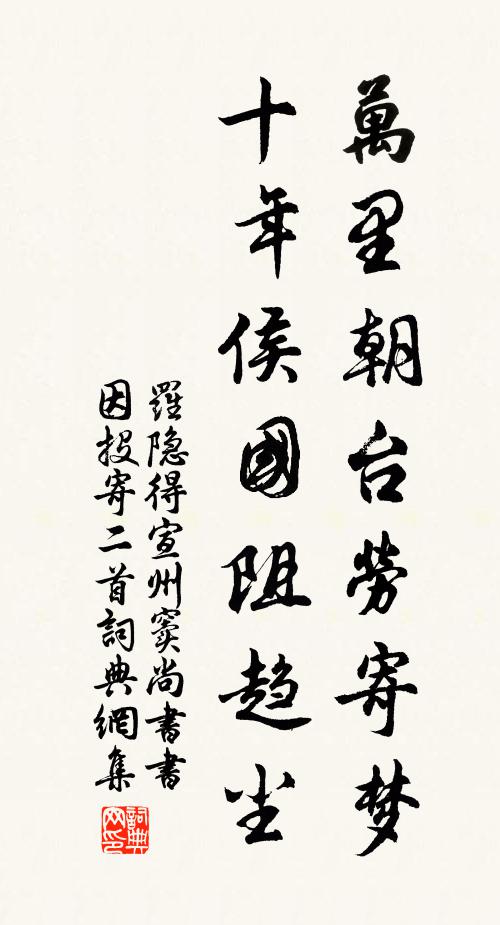 萬里朝台勞寄梦
十年侯國阻趋尘
羅隐得宣州窦尚書書
因投寄二首詞典網集
詞典网印